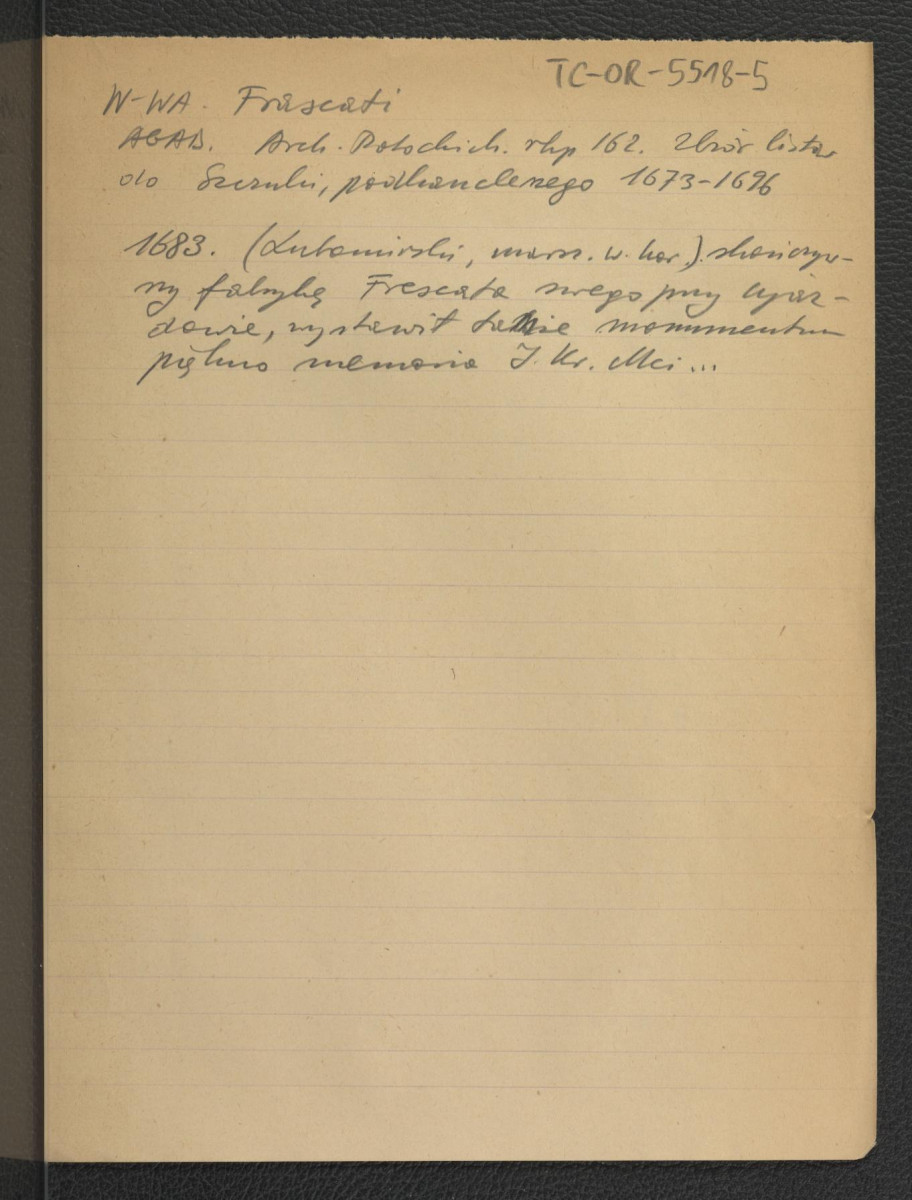 TC-OR-5518-5
W-WA. Frascati
AGAD. Arch. Potockich. rkp 162. Zbiór listów
do Szczuki, podkanclerzego 1673-1696
1683. (Lubomirski, marsz. w. kor.). skończyw-
szy fabrykę Frescata swego przy Ujaz-
dowie, wystawił także monumentum
piękno memoria J. Kr. Mci...